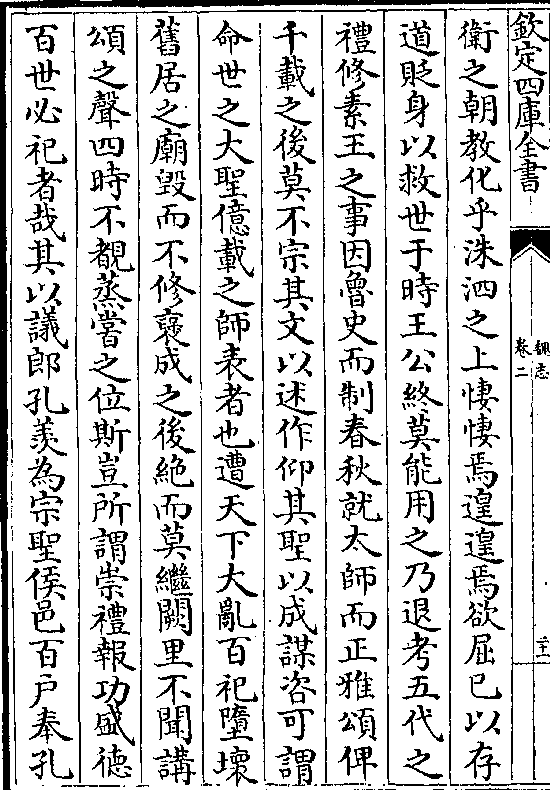 欽定四庫全書
魏志
卷二
二十一
衛之朝教化乎洙泗之上悽悽焉遑遑焉欲屈己以存
道貶身以救世于時王公終莫能用之乃退考五代之
禮修素王之事因魯史而制春秋就太師而正雅頌俾
千載之後莫不宗其文以述作仰其聖以成謀咨可謂
命世之大聖億載之師表者也遭天下大亂百祀墮壞
舊居之廟毀而不修褒成之後絶而莫繼闕里不聞講
頌之聲四時不覩蒸嘗之位斯豈所謂崇禮報功盛德
百世必祀者哉其以議郎孔羨為宗聖侯邑百户奉孔